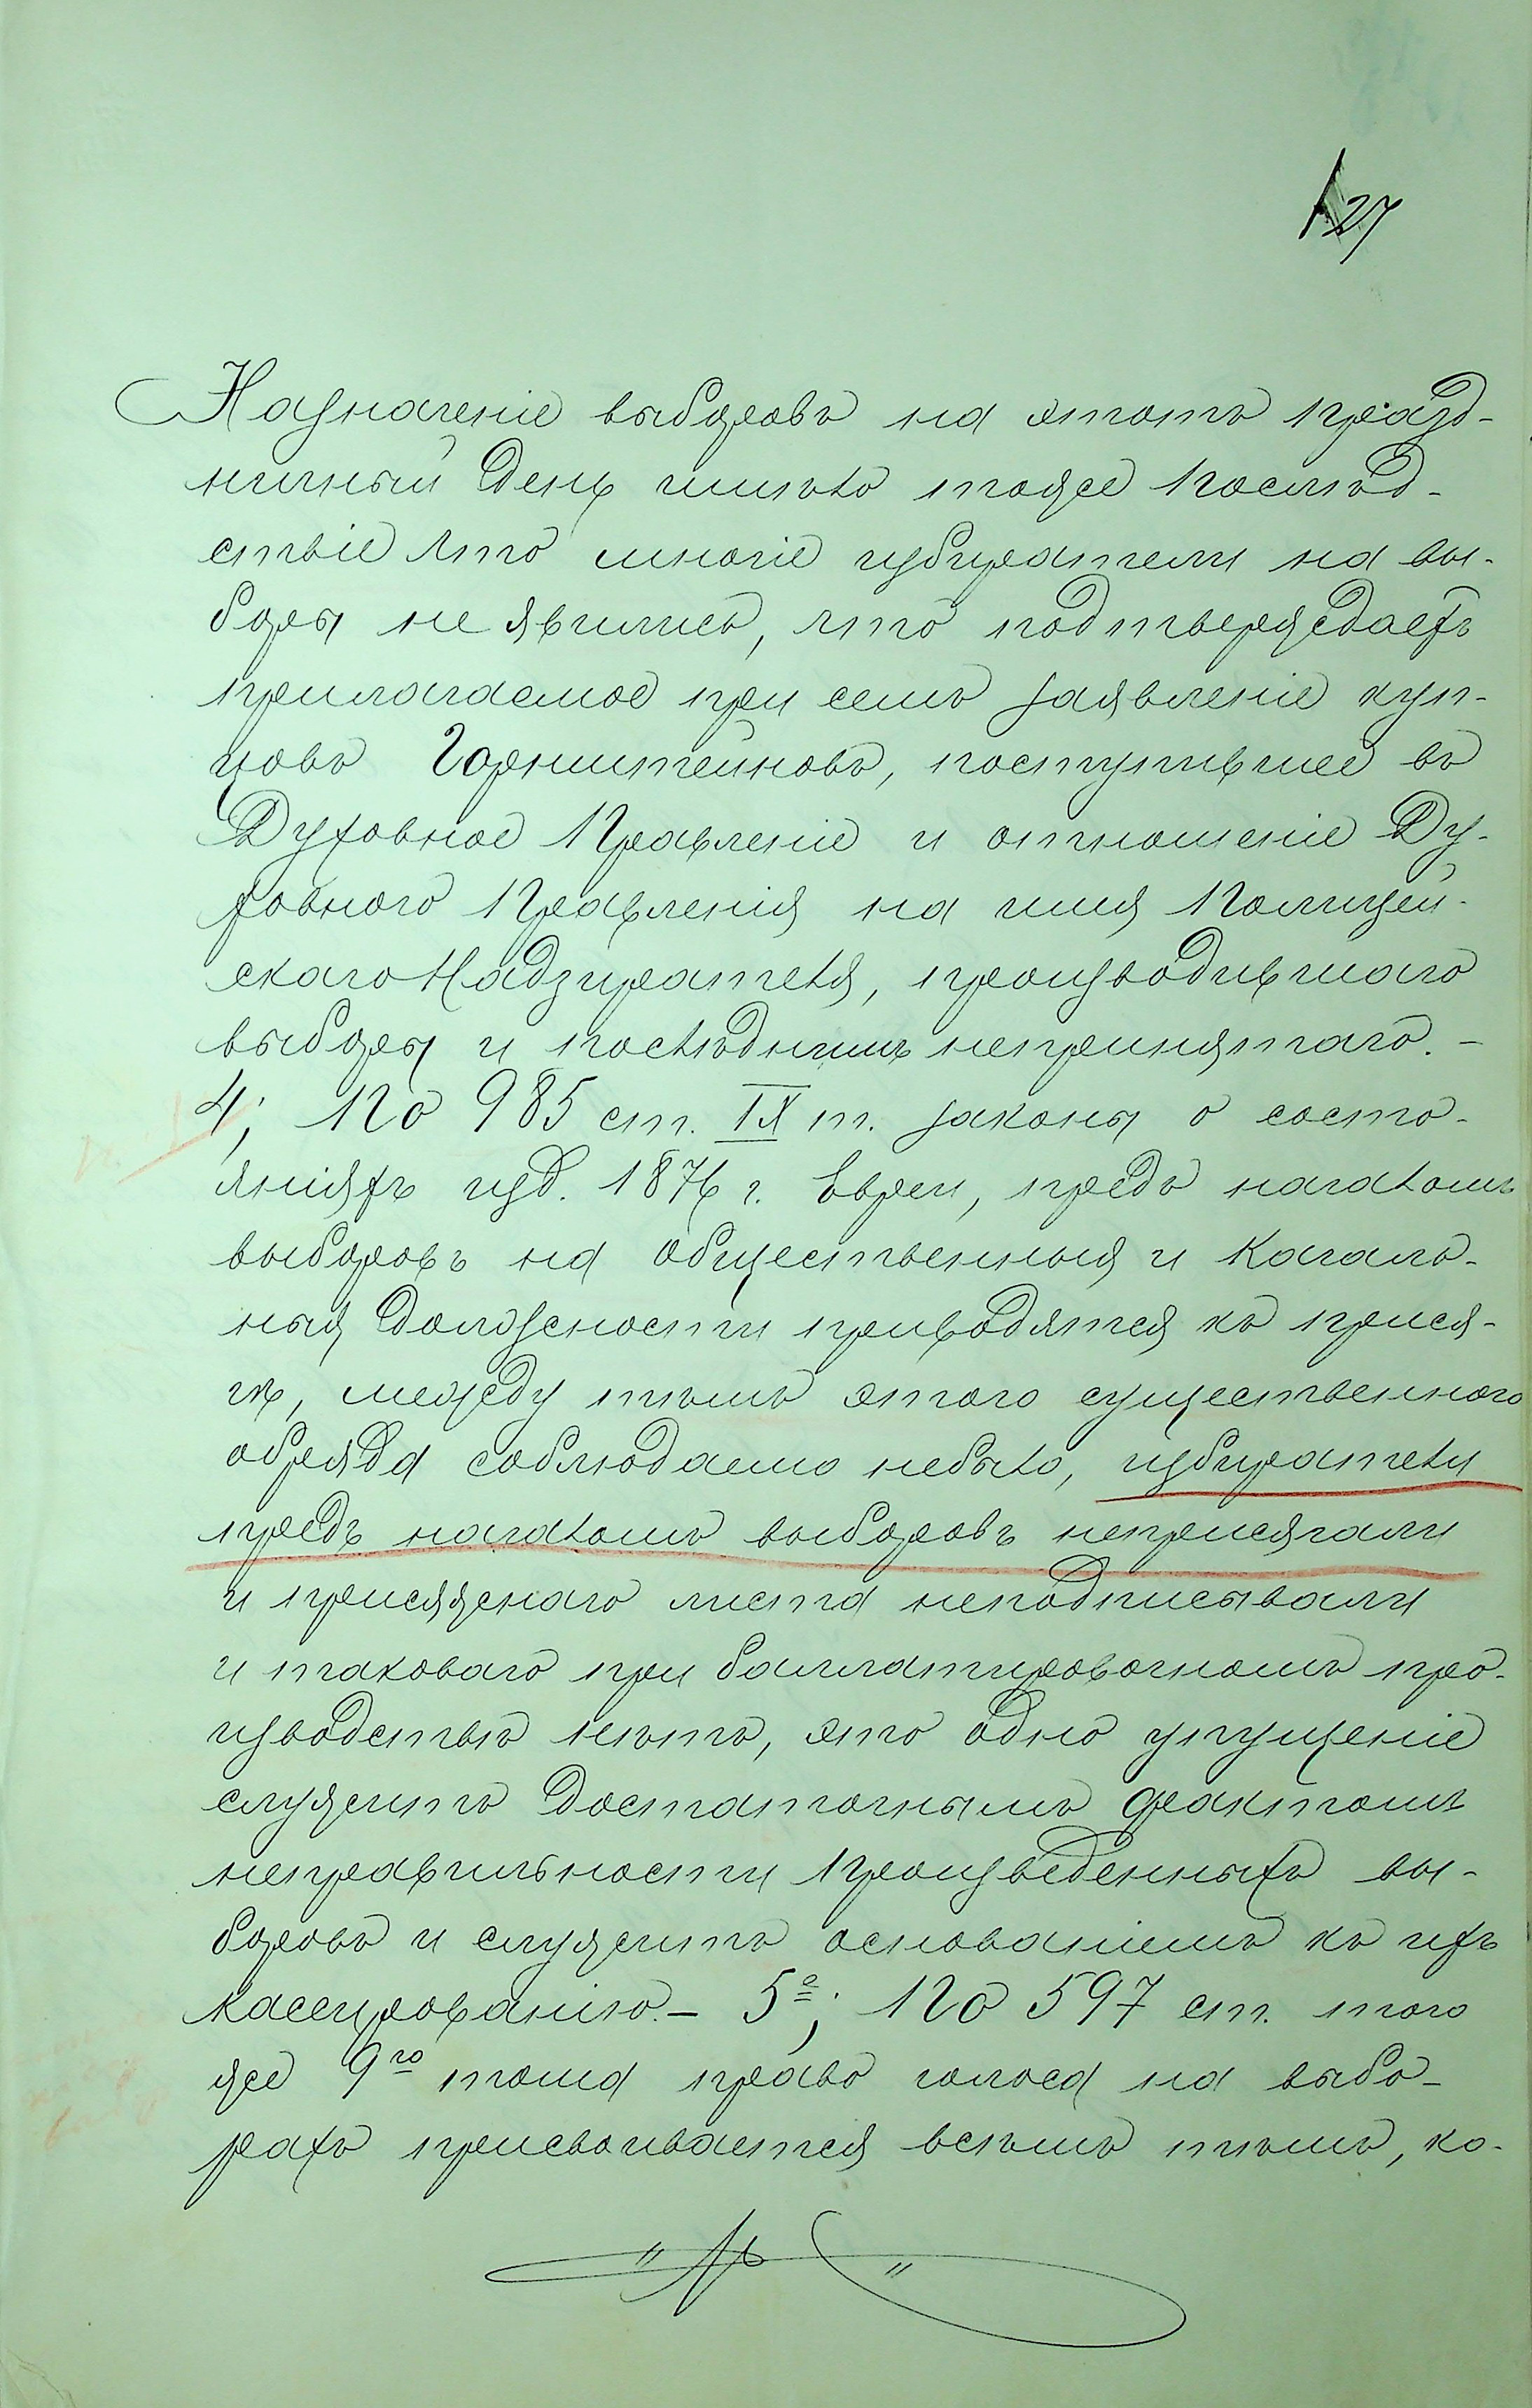 27
Назначеніе выборовъ на этотъ празд-
ничный день имѣло тоже послѣд-
ствіе что многіе избиратели на вы-
боры не явились, что подтверждаетъ
прилагаемое при семъ заявленіе куп-
цовъ Горнштейновъ, поступившее въ
Духовное Правленіе и отношеніе Ду-
ховного Правленія на имя Полицей-
скаго Надзирателя, производившаго
выборы и послѣднимъ непринятаго. -
4; По 985 ст. IX т. законы о состо-
янияхъ изд. 1876 г. Евреи, предъ началомъ
выборовъ на общественныя и кагаль-
ныя должности приводятся къ прися-
гѣ, между тѣмъ этого существенного
обряда соблюдаемо небыло, избиратели
предъ началомъ выборовъ неприсягали
и присяжнаго листа неподписывали
и таковаго при баллатировочномъ про-
изводствѣ нѣтъ, это одно упущеніе
служитъ достаточнымъ фактомъ
неправильности произведенныхъ вы-
боровъ и служитъ основаніемъ къ ихъ
кассированію. - 5е; По 597 ст. того
же 9го тома право голоса на выбо-
рахъ присвоивается всѣмъ тѣмъ, ко-